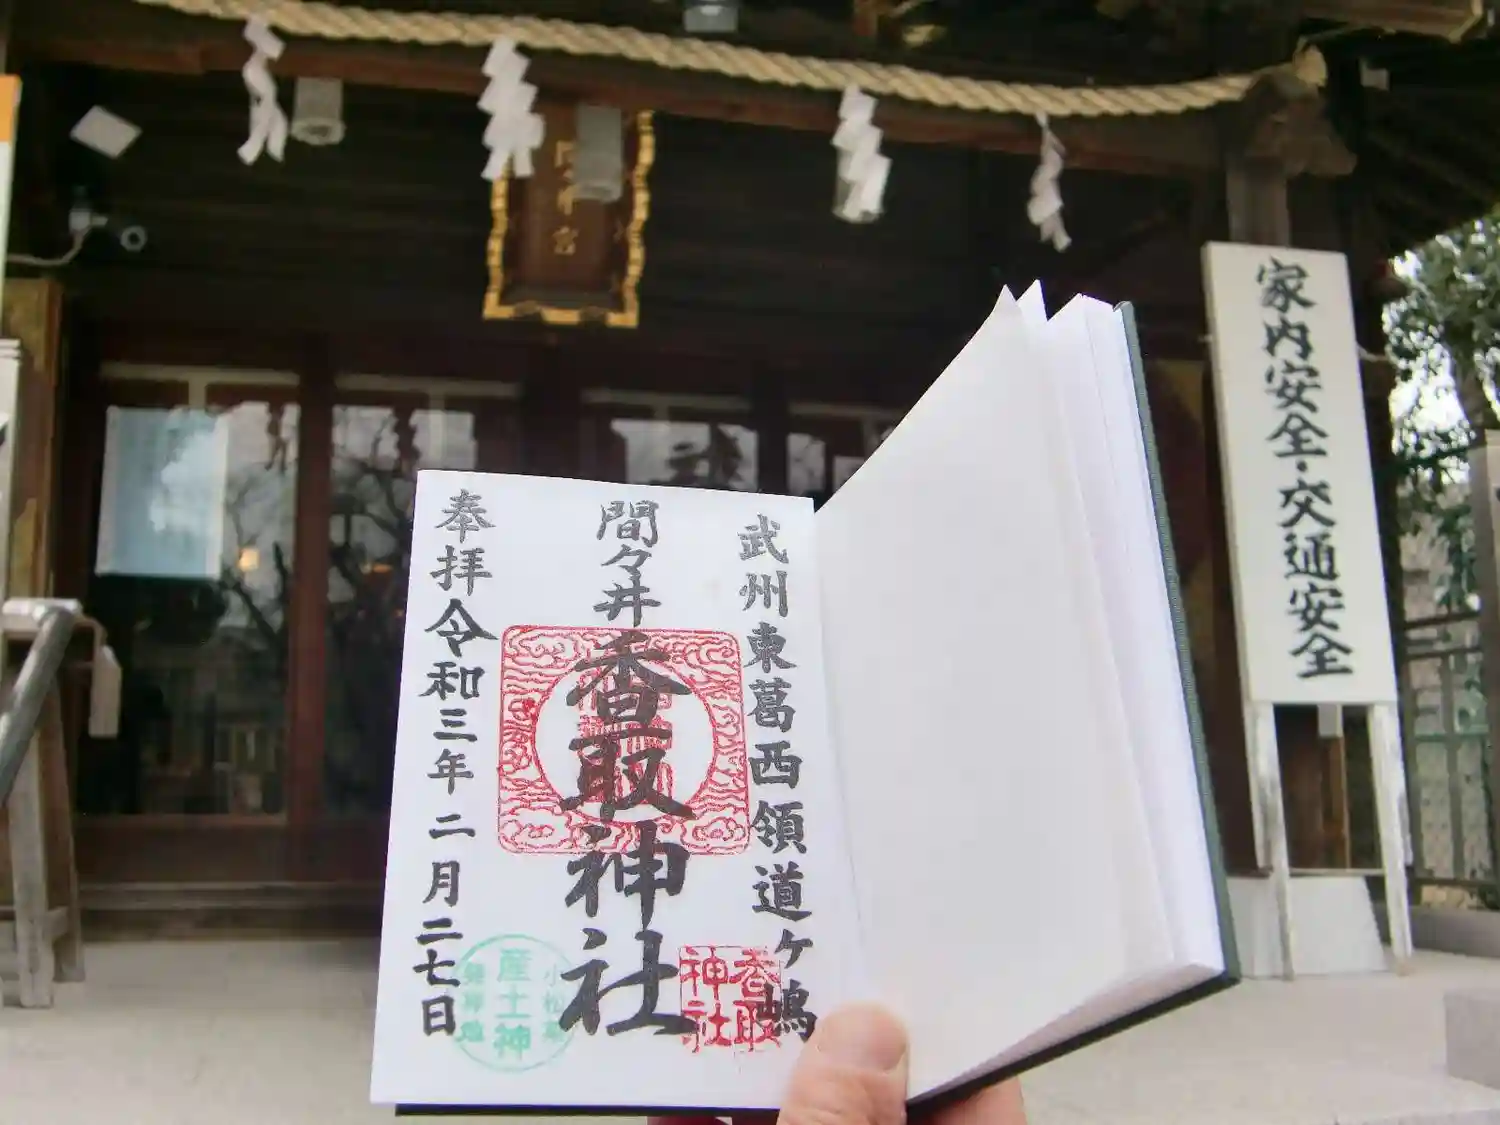 武州東葛西領道ヶ嶋
間々井
香取神社
奉拝 令和三年二月二七日
香取
神社
小松菜
産土神
発祥地
家内安全・交通安全